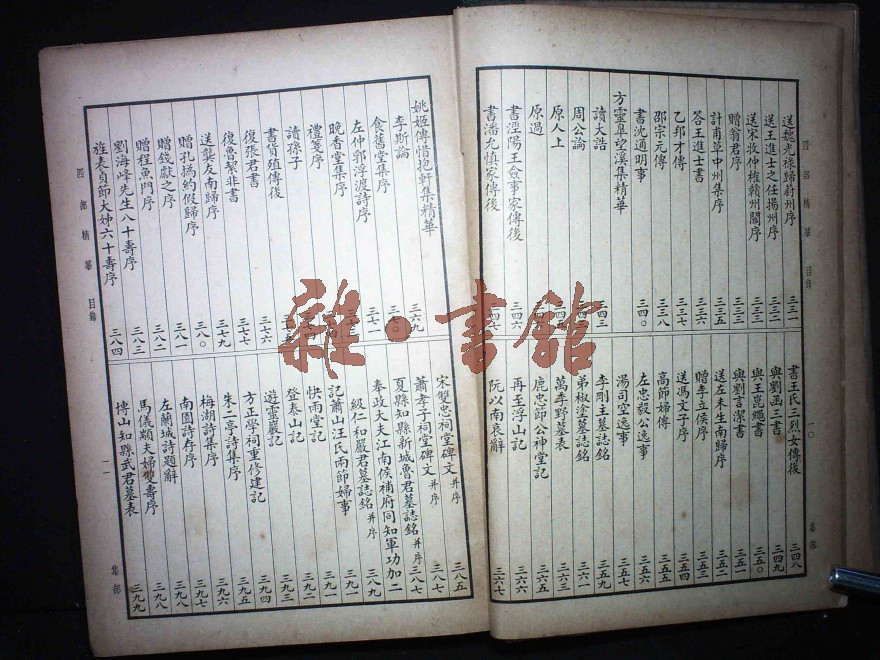 四部精華 目錄
一〇
集部
送趙光祿歸蔚州序 三三一
送王進士之任揚州序 三三二
送宋牧仲榷贛州關序 三三三
贈翁君序 三三三
計甫草中州集序 三三五
答王進士書 三三六
乙邦才傳 三三七
邵宗元傳 三三八
書沈通明事 三四〇
方靈皋望溪集精華
讀大誥 三四三
周公論
原人上
原過
書涇陽王僉事家傳後 三四六
書潘允慎家傳後 三四七
書王氏三烈女傳後 三四八
與劉函三書 三四九
與王崑繩書 三五〇
與劉言潔書 三五一
送左未生南歸序 三五二
贈李立侯序 三五三
送馮文子序 三五四
高節婦傳 三五五
左忠毅公逸事 三五六
湯司空逸事 三五七
李剛主墓誌銘 三五九
弟椒塗墓誌銘 三六一
萬季野墓表 三六三
鹿忠節公祠堂記 三六五
再至浮山記 三六六
阮以南哀辭 三六七
姚姬傳惜抱軒集精華
李斯論 三六九
食舊堂集序 三七〇
左仲郛浮渡詩序 三七一
晚香堂集序
禮箋序
讀孫子
書貨殖傳後 三七六
復張君書 三七七
復魯絜非書 三七九
送龔友南歸序 三八〇
贈孔撝約假歸序 三八一
贈錢獻之序 三八二
贈程魚門序 三八三
劉海峰先生八十壽序
旌表貞節大姊六十壽序 三八四
宋雙忠祠堂碑文 并序 三八五
蕭孝子祠堂碑文 并序 三八七
夏縣知縣新城魯君墓誌銘 并序 三八七
奉政大夫江南候補府同知軍功加二
級仁和嚴君墓誌銘 并序 三八九
記蕭山汪氏兩節婦事 三九一
快雨堂記 三九一
登泰山記 三九三
遊靈巖記 三九四
方正學祠重修建記 三九五
朱二亭詩集序 三九六
梅湖詩集序 三九七
南園詩存序 三九八
左蘭城詩題辭 三九八
馬儀顓夫婦雙壽序 三九九
博山知縣武君墓表 三九九
四部精華 目錄
一一
集部
雜·書館